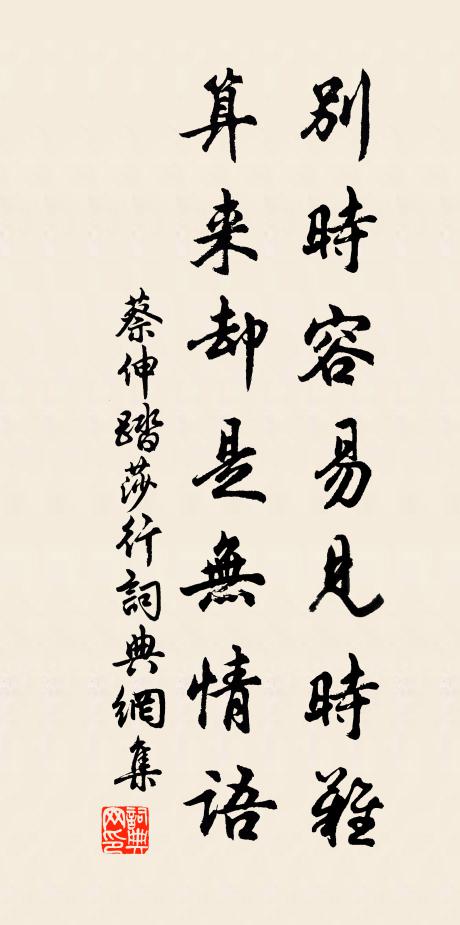 別時容易見時難
算来却是無情語
蔡伸踏莎行詞典網集
詞典网印